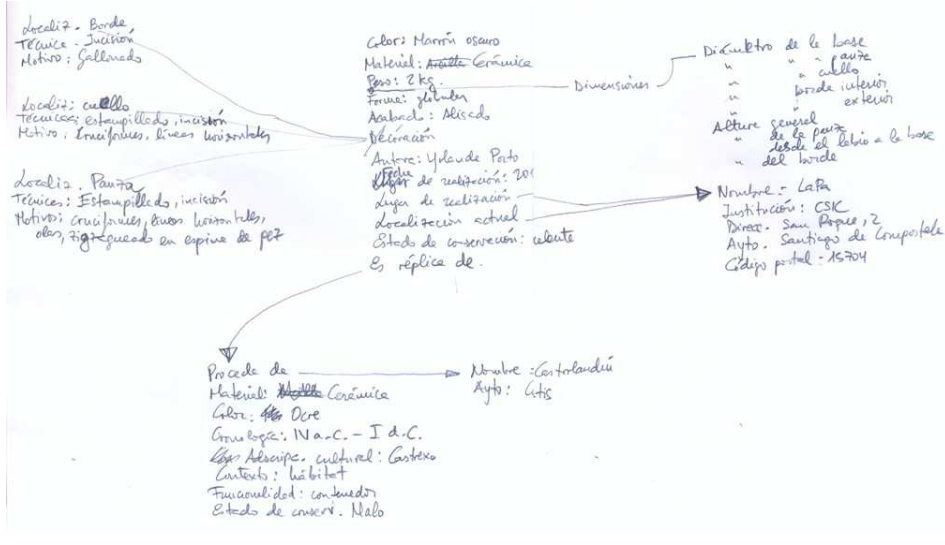 Localiz. Borde
Técnica. Incisión
Motivo: Gallonado
Localiz: cuello
Técnicas: estampillado, incisión
Motivo: Cruciformes, líneas horizontales
Localiz. Panza
Técnicas: Estampillado, incisión
Motivos: cruciformes, líneas horizontales,
olas, zigzagueado en espina de pez
Color: Marrón oscuro
Material: Arcilla Cerámica
Peso: 2 kg.
Forma: globular
Acabado: Alisado
Decoración
Autora: Yolanda Porto
Fecha de realización: 201
Lugar de realización
Localización actual
Estado de conservación:
Es réplica de.
Dimensiones
Diámetro de la base
" " panza
" " cuello
" borde interior
" exterior
Altura general
" de la panza
" desde el labio a la base
" del borde
Nombre: LaPa
Institución: CSIC
Direcc. San Roque, 2
Ayto. Santiago de Compostela
Código postal: 15704
Procede de
Material: Cerámica
Color: Ocre
Cronología: IV a.C. - I d.C.
Adscripc. cultural: Castrexo
Contexto: hábitat
Funcionalidad: contenedor
Estado de conserv. Malo
Nombre: Castrolandín
Ayto: Cutis